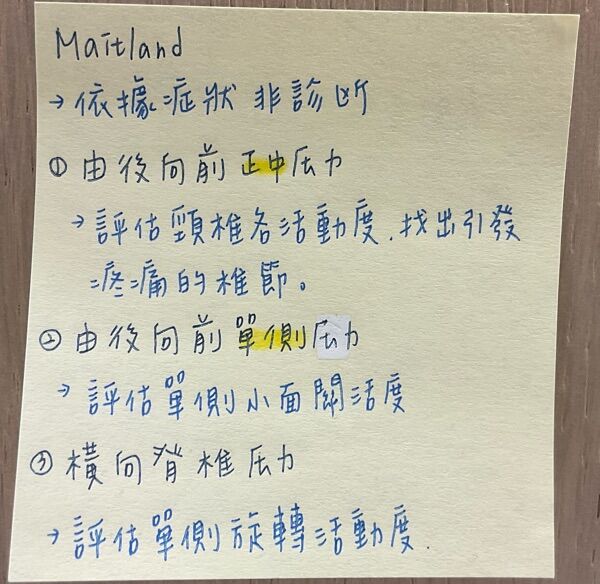 Maitland
→依據症狀非診斷
① 由後向前正中压力
→評估頸椎各活動度.找出引發
疼痛的椎節。
② 由後向前單側压力
→評估單側小面關活度
③ 橫向脊椎压力
→評估單側旋轉活動度.